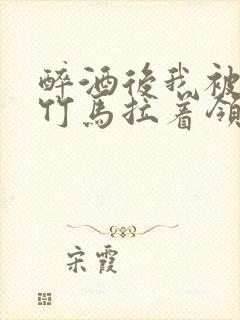 醉酒後我被
竹馬拉着領
宋霞